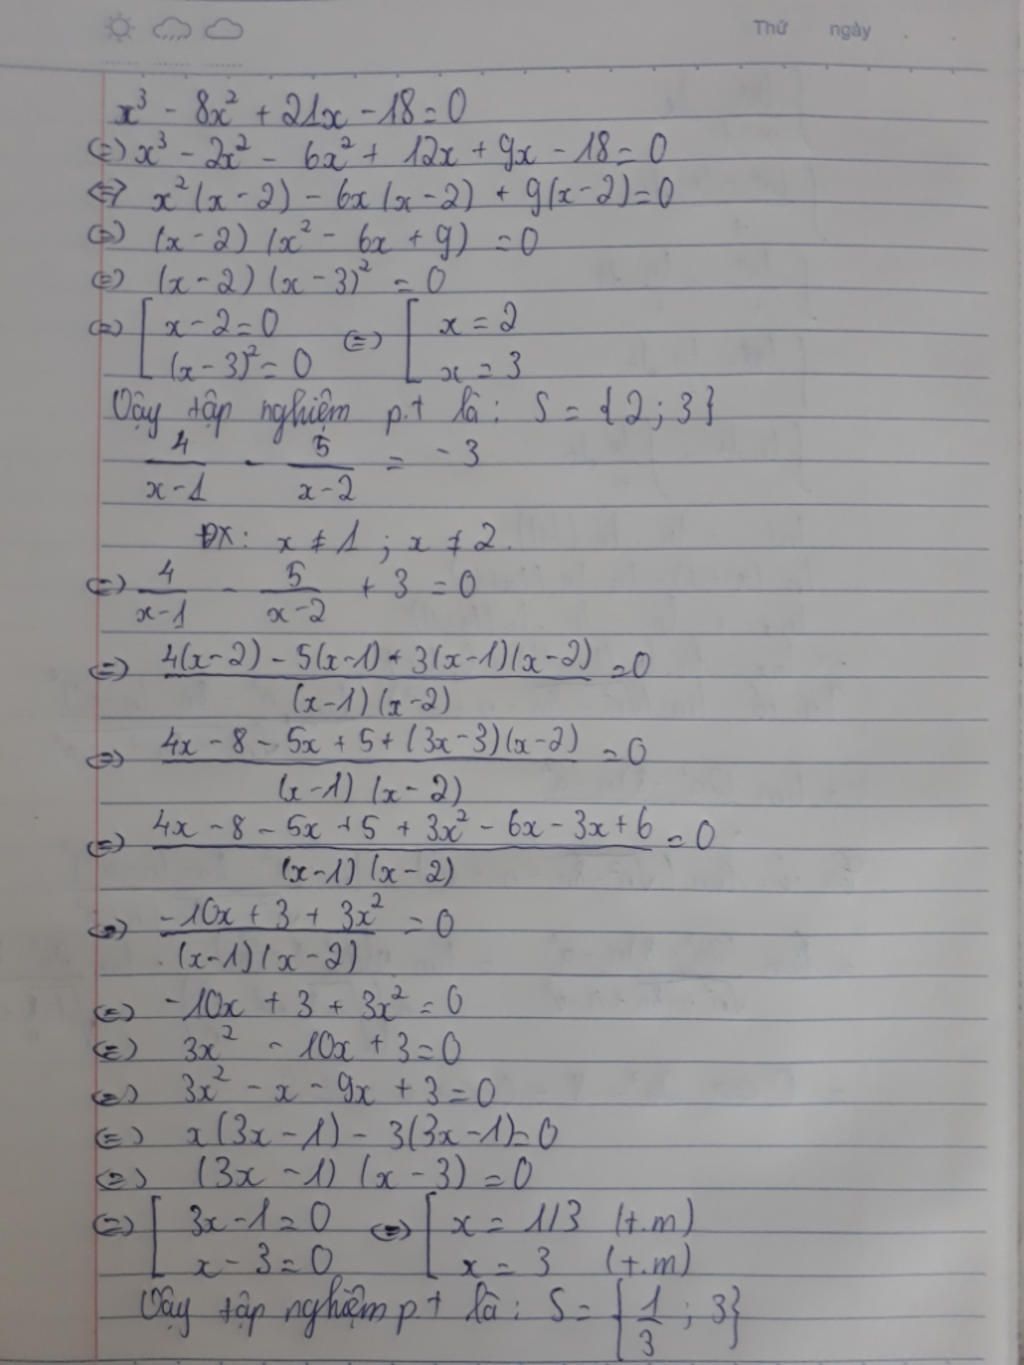 Thứ ngày
x³ - 8x² + 21x - 18 = 0
(=) x³ - 2x² - 6x² + 12x + 9x - 18 = 0
<=> x²(x - 2) - 6x(x - 2) + 9(x - 2) = 0
(=) (x - 2) (x² - 6x + 9) = 0
(=) (x - 2) (x - 3)² = 0
(=) [ x - 2 = 0 (=) [ x = 2
(x - 3)² = 0 x = 3
Vậy tập nghiệm p.t là : S = {2 ; 3}
4/(x - 1) - 5/(x - 2) = -3
ĐX: x ≠ 1 ; x ≠ 2.
(=) 4/(x - 1) - 5/(x - 2) + 3 = 0
(=) (4(x - 2) - 5(x - 1) + 3(x - 1)(x - 2))/((x - 1)(x - 2)) = 0
(=) (4x - 8 - 5x + 5 + (3x - 3)(x - 2))/((x - 1)(x - 2)) = 0
(=) (4x - 8 - 5x + 5 + 3x² - 6x - 3x + 6)/((x - 1)(x - 2)) = 0
(=) (-10x + 3 + 3x²)/((x - 1)(x - 2)) = 0
(=) -10x + 3 + 3x² = 0
(=) 3x² - 10x + 3 = 0
(=) 3x² - x - 9x + 3 = 0
(=) x(3x - 1) - 3(3x - 1) = 0
(=) (3x - 1) (x - 3) = 0
(=) [ 3x - 1 = 0 (=) [ x = 1/3 (t.m)
x - 3 = 0 x = 3 (t.m)
Vậy tập nghiệm p.t là : S = {1/3 ; 3}